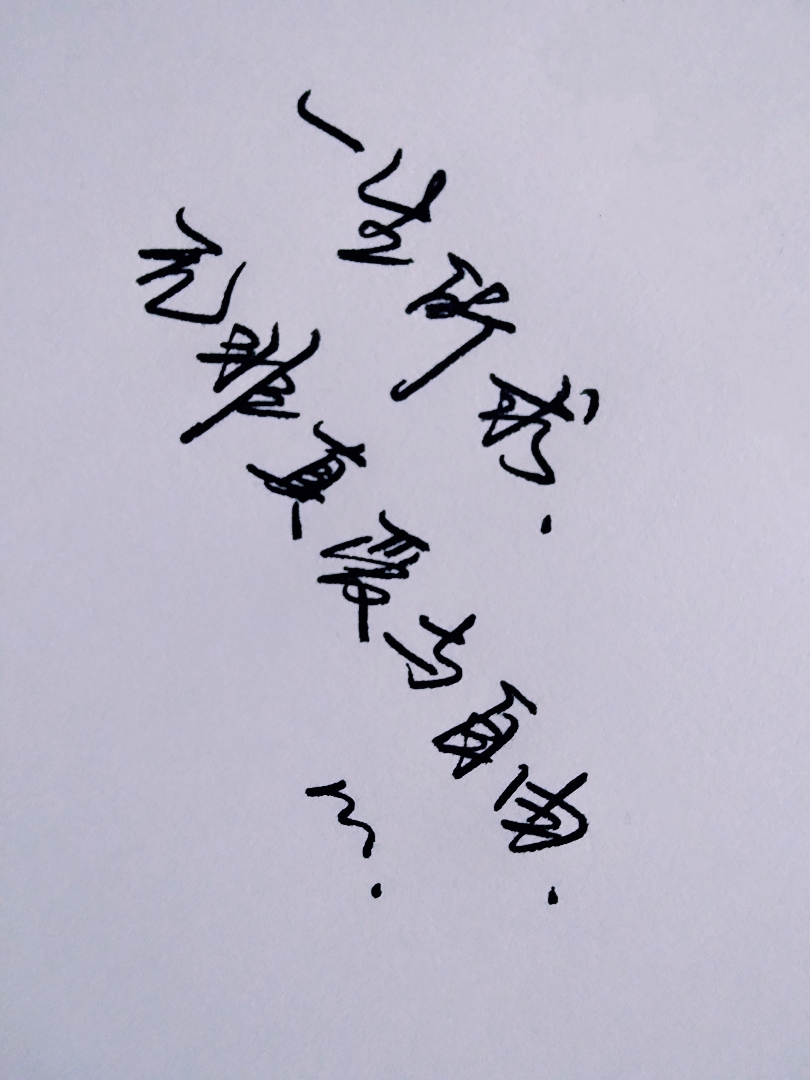 一生所求.
无非真爱与自由.
m.